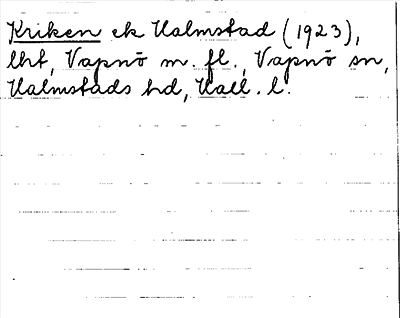 Kriken ek Halmstad (1923),
lht, Vapnö m. fl., Vapnö sn,
Halmstads hd, Hall. l.